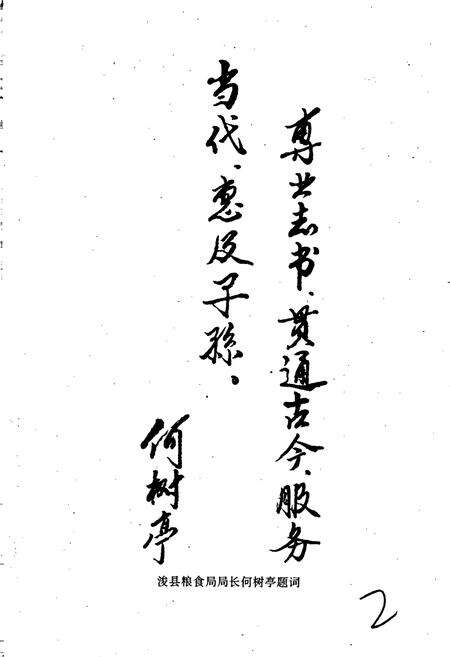 専业志书、贯通古今、服务
当代、惠及子孙。
何树亭
浚县粮食局局长何树亭题词
2